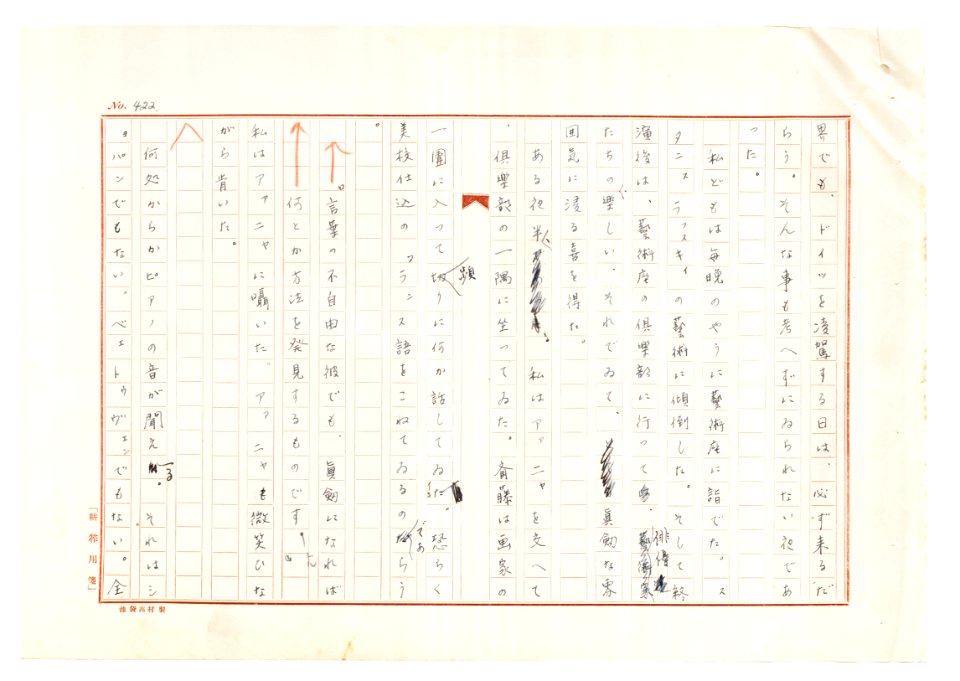 No. 422.
界でも、ドイツを凌駕する日は、必ず来るだ
らう。そんな事も考へずにゐられない夜であ
った。
私どもは毎晩のやうに藝術座に詣でた。ス
タニスラフスキイの藝術に傾倒した。そして終
演後は、藝術座の倶樂部に行って、俳優
たちの樂しい、それでゐて、眞劍な雰
囲気に浸る喜を得た。
ある夜半、私はアァニャを交へて
、倶樂部の一隅に坐ってゐた。斎藤は画家の
一團に入って頻りに何か話してゐた。恐らく
美校仕込のフランス語をこねてゐるのであらう
。
「言葉の不自由な彼でも、眞劍になれば
何とか方法を発見するものです」
私はアァニャに囁いた。アァニャも微笑ひな
がら肯いた。
何処からかピアノの音が聞える。それはシ
ョパンでもない。ベェトゥヴェンでもない。全
「新 用箋」
製村高袋